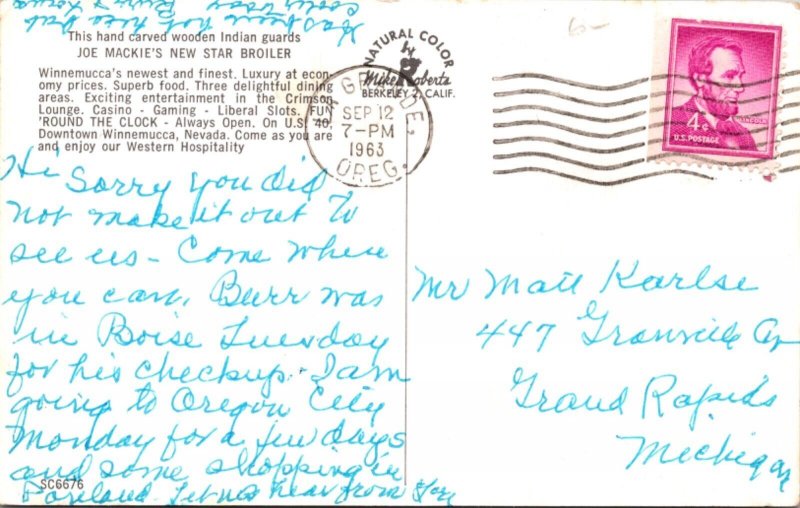 This hand carved wooden Indian guards
JOE MACKIE'S NEW STAR BROILER
Winnemucca's newest and finest. Luxury at econ-
omy prices. Superb food. Three delightful dining
areas. Exciting entertainment in the Crimson
Lounge. Casino - Gaming - Liberal Slots. FUN
'ROUND THE CLOCK - Always Open. On U.S. 40,
Downtown Winnemucca, Nevada. Come as you are
and enjoy our Western Hospitality
NATURAL COLOR
by
Mike Roberts
BERKELEY 2, CALIF.
LA GRANDE,
SEP 12
7-PM
1963
OREG.
6-
LINCOLN
4¢
U.S. POSTAGE
Hi Sorry you did
not make it out to
see us - Come when
you can. Burr was
in Boise Tuesday
for his checkup. I am
going to Oregon City
Monday for a few days
and some shopping in
Portland. Let us hear from you
Has been hot here but
cooler today
Mr Matt Karlse
447 Granville
Grand Rapids
Mechigan
SC6676